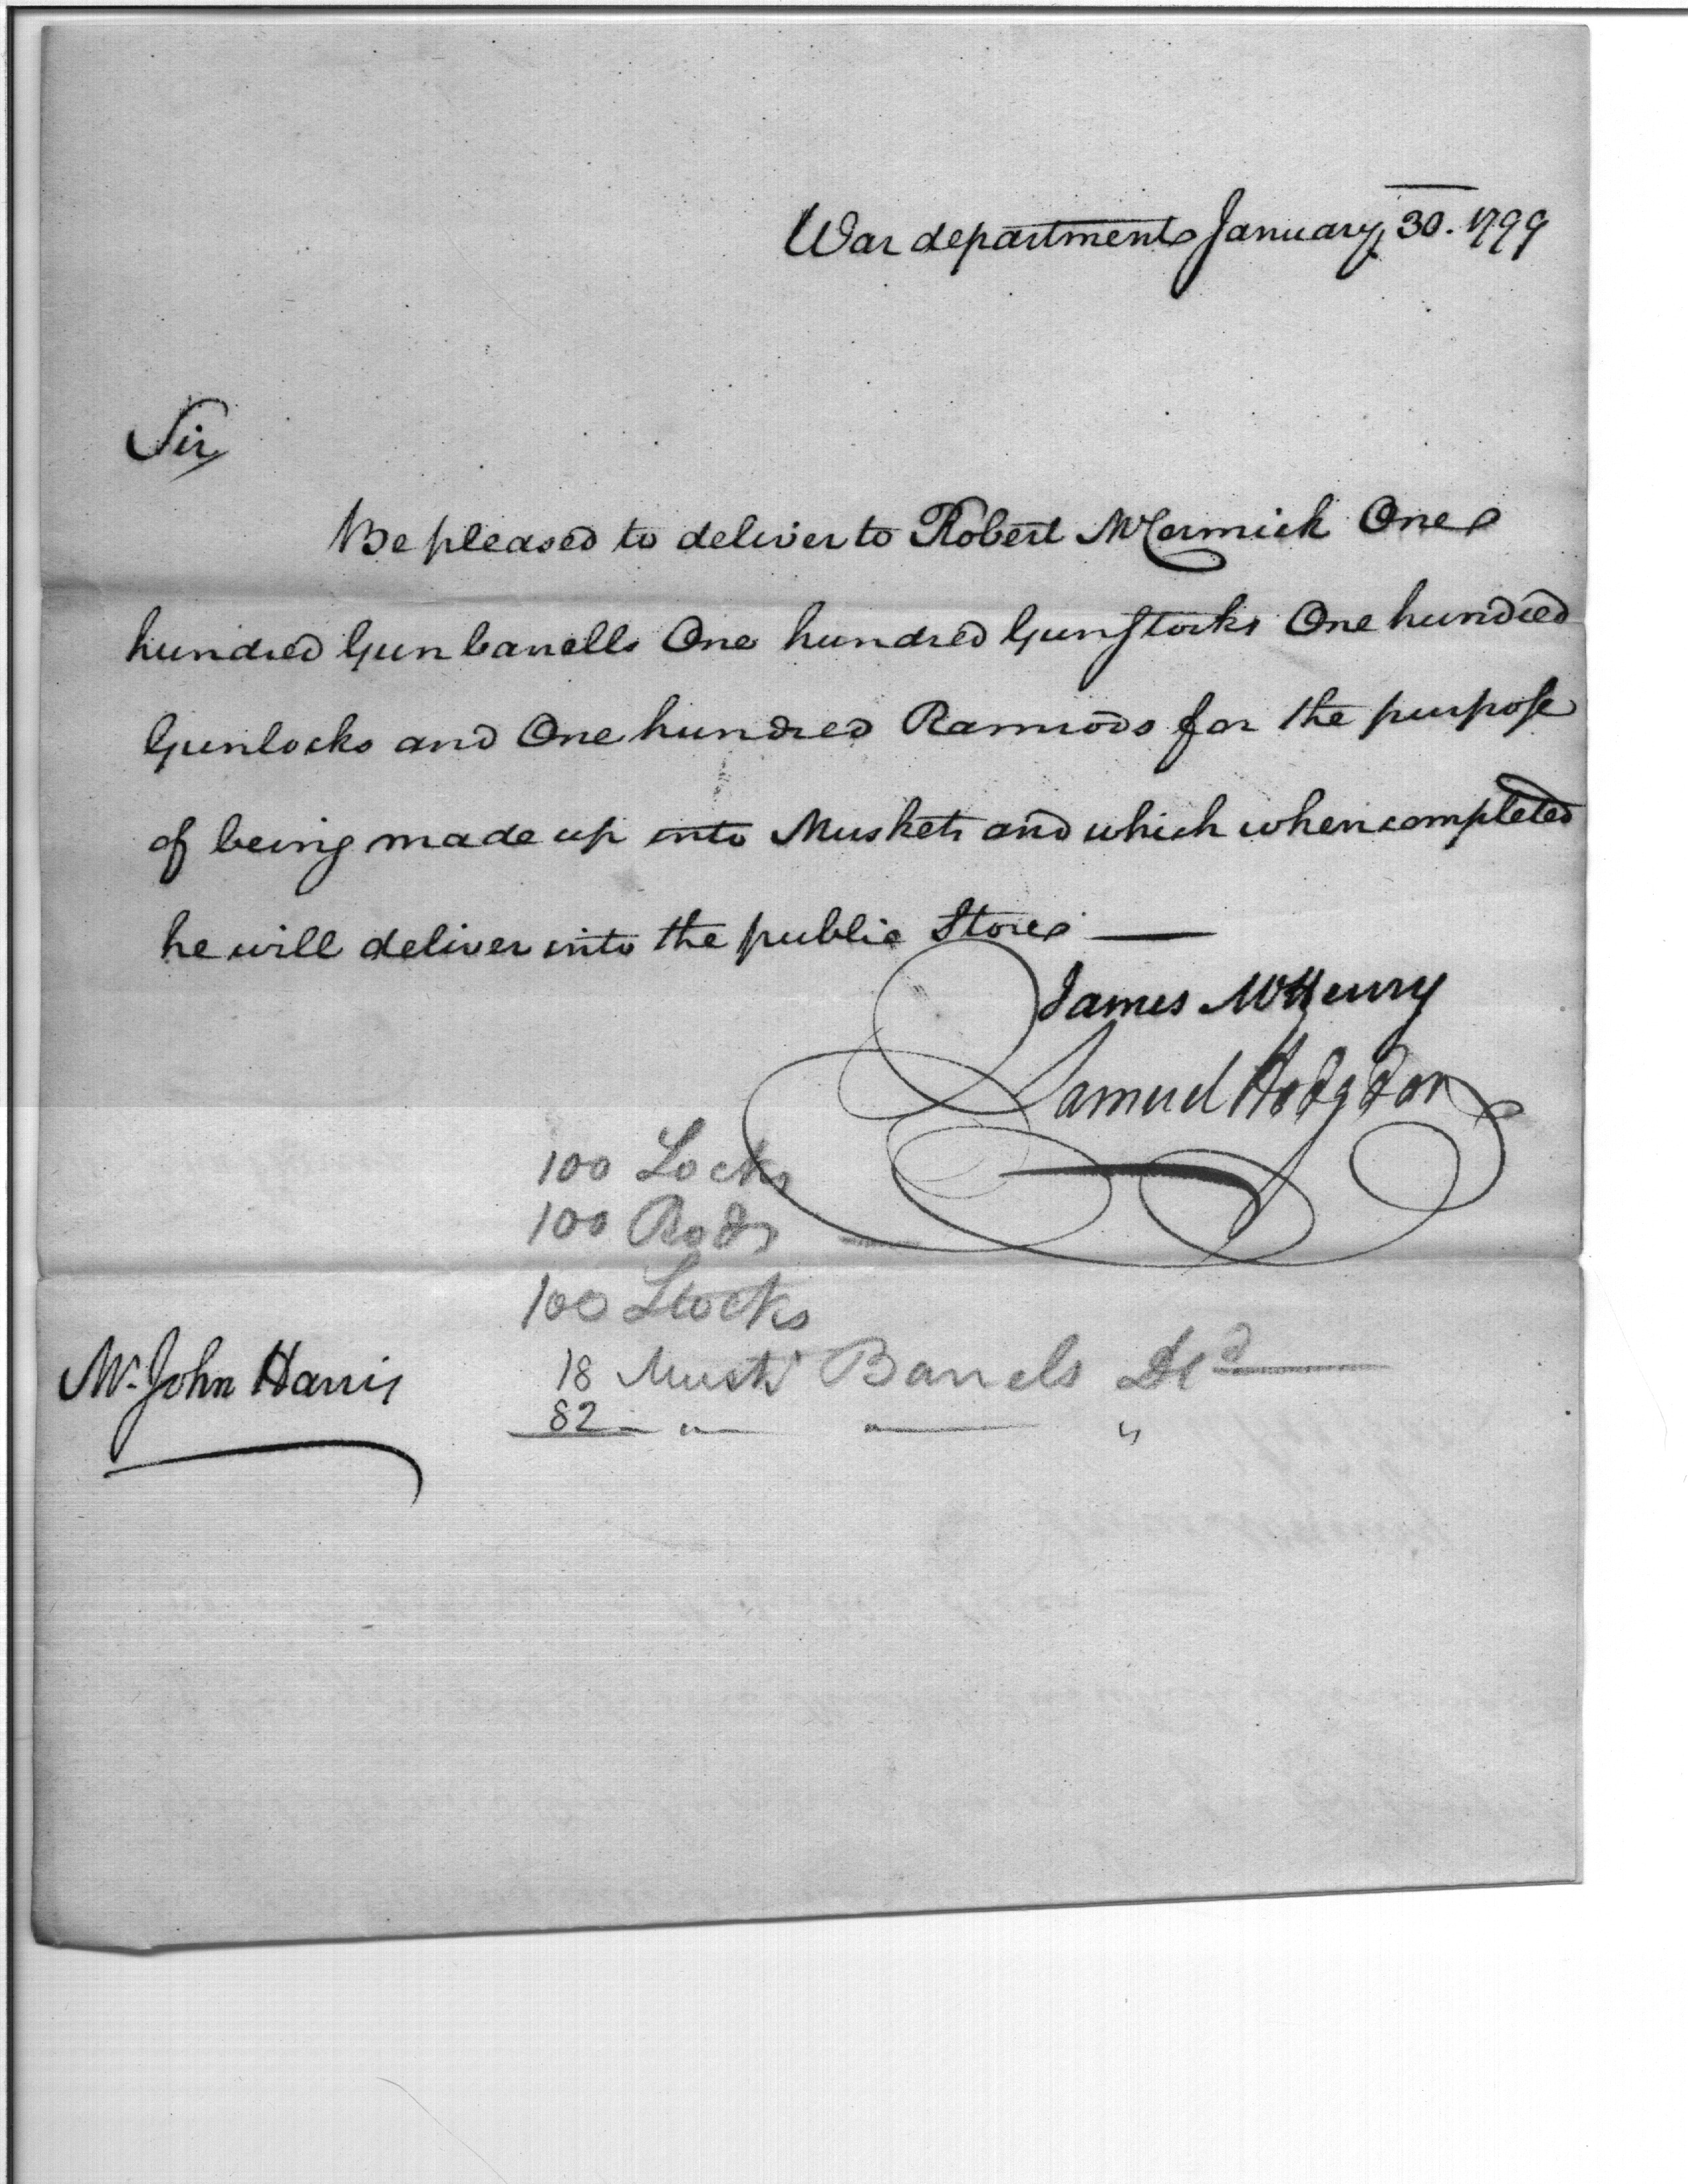 War department January 30. 1799
Sir,
Be pleased to deliver to Robert McCormick One
hundred Gun barrells One hundred Gun Stocks One hundred
Gunlocks and One hundred Ramrods for the purpose
of being made up into Muskets and which when completed
he will deliver into the public Store —
James McHenry
Samuel Hodgdon
100 Locks
100 Rods
100 Stocks
18 Muskt Barrels Dld
82 " — "
Mr. John Harris